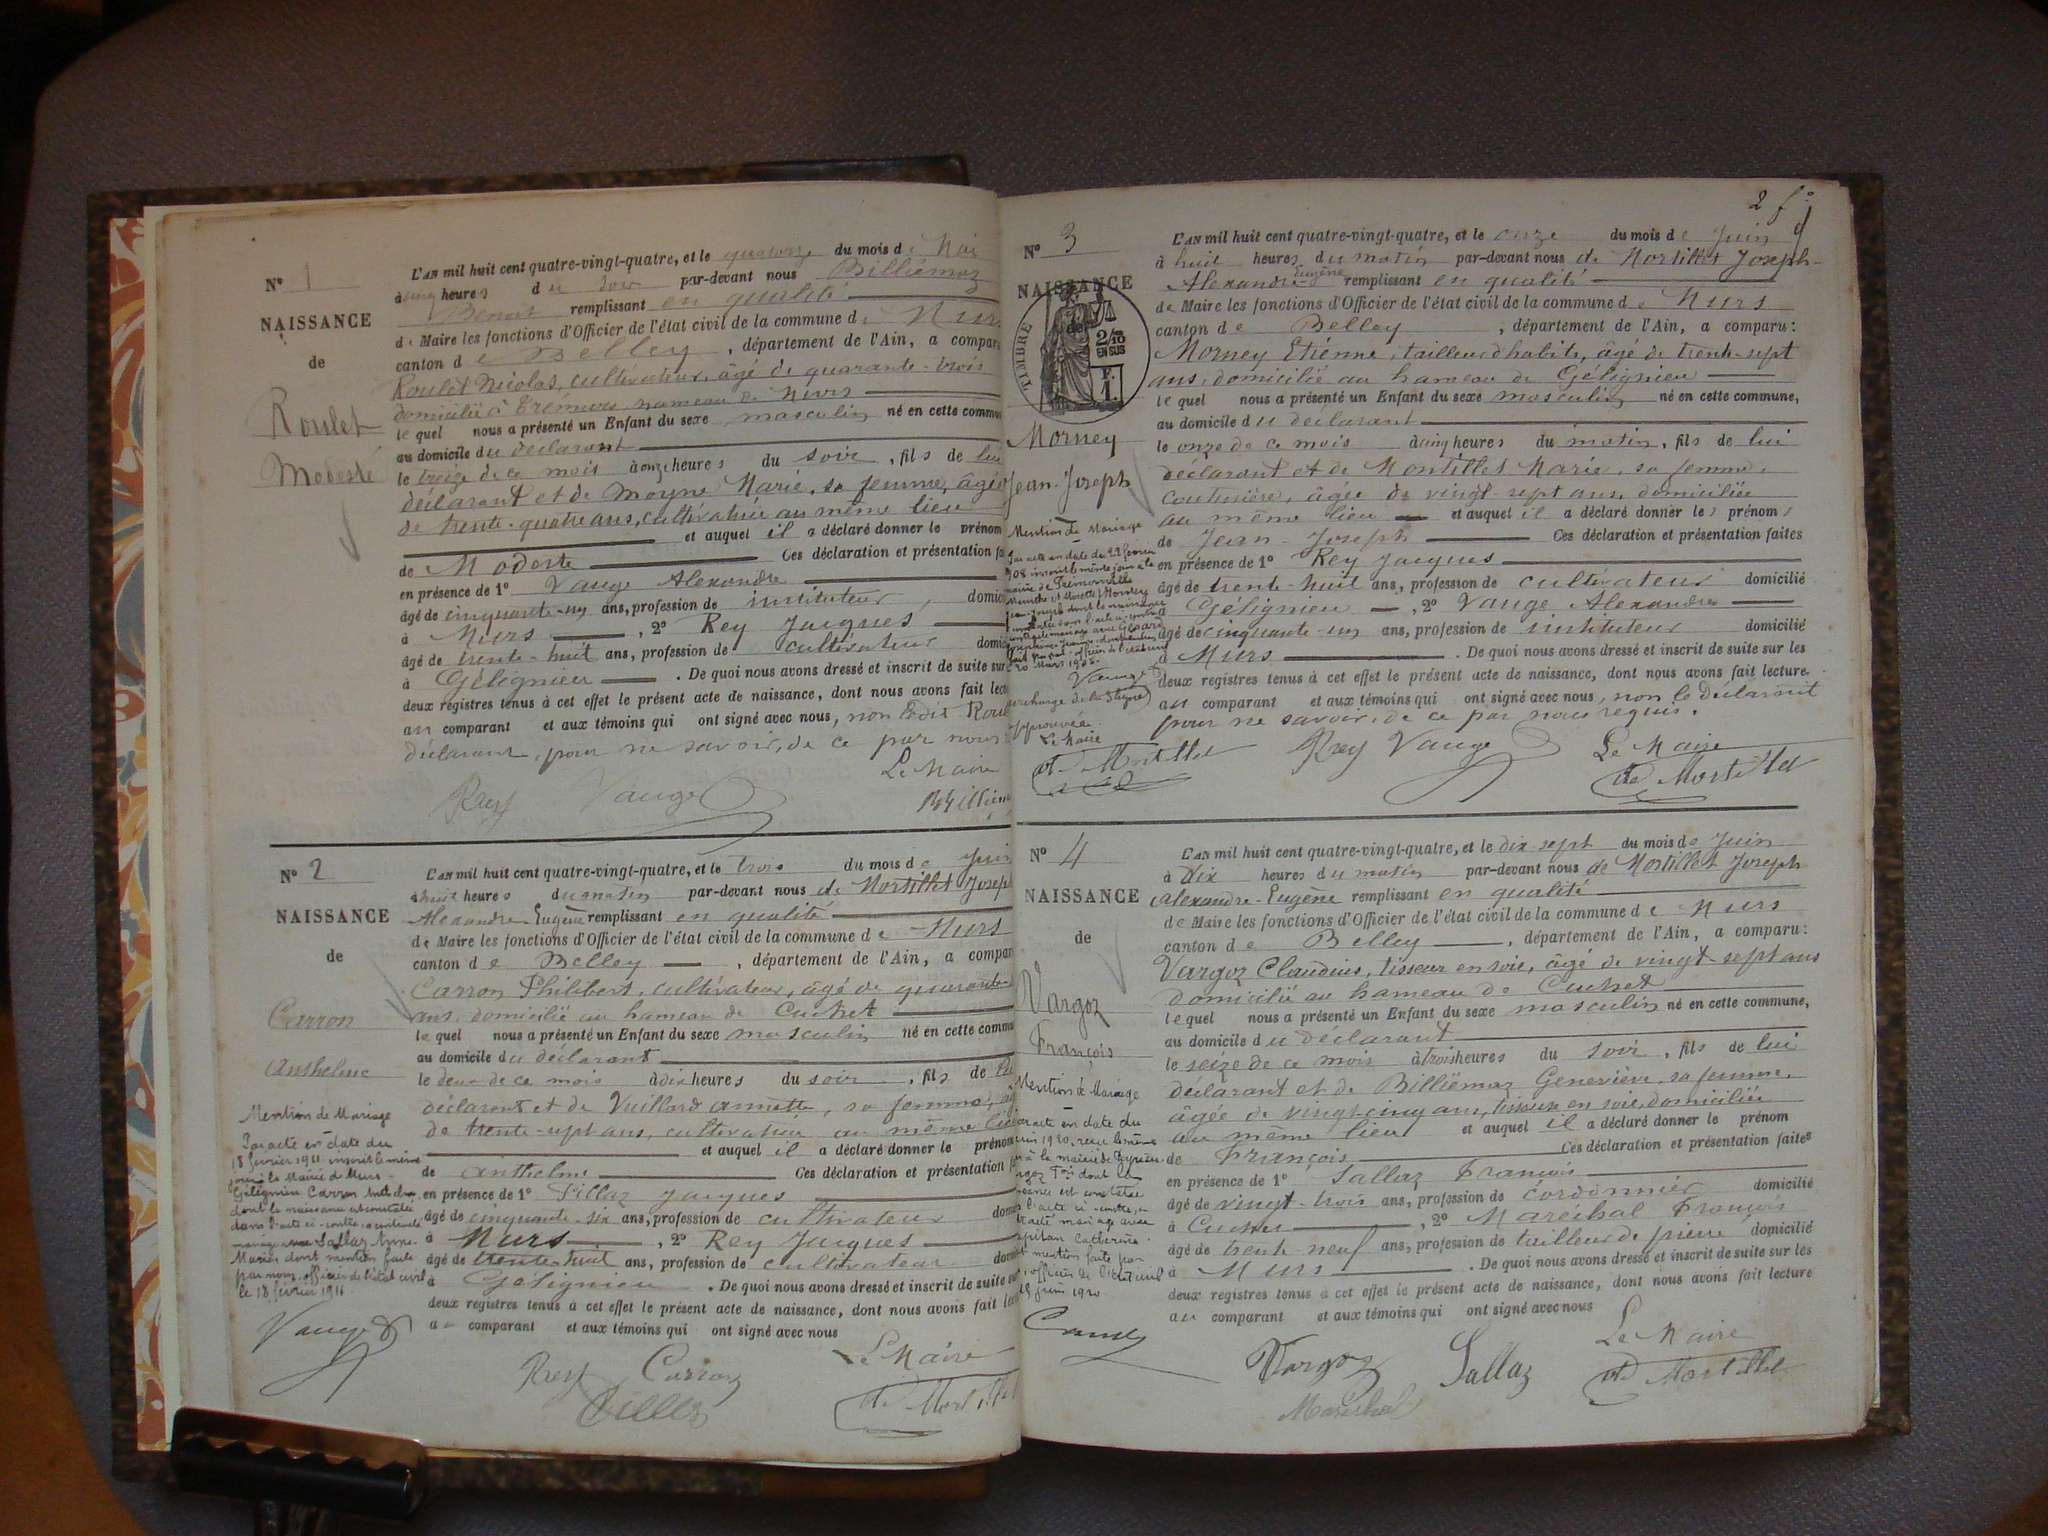 N° 1
NAISSANCE
de
Roulet
Modeste
L'AN mil huit cent quatre-vingt-quatre, et le quatorze du mois de Mai
à cinq heures du soir par-devant nous Billiémaz
Benoit remplissant en qualité
de Maire les fonctions d'Officier de l'état civil de la commune de Murs
canton de Belley, département de l'Ain, a compar
Roulet Nicolas, cultivateur, âgé de quarante-trois
domicilié à Trémurs, hameau de Murs
le quel nous a présenté un Enfant du sexe masculin né en cette commu
au domicile du déclarant
le treize de ce mois à onze heures du soir, fils de lui
déclarant et de Moyne Marie, sa femme, âgée
de trente-quatre ans, cultivatrice au même lieu
et auquel il a déclaré donner le prénom
de Modeste Ces déclaration et présentation fai
en présence de 1° Vauge Alexandre
âgé de cinquante-un ans, profession de instituteur, domici
à Murs, 2° Rey Jacques
âgé de trente-huit ans, profession de cultivateur domi
à Gélignieu. De quoi nous avons dressé et inscrit de suite sur
deux registres tenus à cet effet le présent acte de naissance, dont nous avons fait lect
au comparant et aux témoins qui ont signé avec nous, non ledit Roul
déclarant, pour ne savoir, de ce par nous
Le Maire
Rey Vauge Billiém
N° 2
NAISSANCE
de
Carron
Anthelme
Mention de Mariage
Par acte en date du
18 février 1911 inscrit le même
jour à la Mairie de Murs-
Gélignieu Carron Anthelme
dont la naissance est constatée
dans l'acte ci-contre a contracté
mariage avec Sallaz Anne-
Marie, dont mention faite
par nous, officier de l'état civil
le 18 février 1911
Vauge
L'AN mil huit cent quatre-vingt-quatre, et le trois du mois de Juin
à huit heures du matin par-devant nous de Mortillet Joseph
Alexandre-Eugène remplissant en qualité
de Maire les fonctions d'Officier de l'état civil de la commune de Murs
canton de Belley, département de l'Ain, a compar
Carron Philibert, cultivateur, âgé de quarante
ans, domicilié au hameau de Cuchet
le quel nous a présenté un Enfant du sexe masculin né en cette commu
au domicile du déclarant
le deux de ce mois à dix heures du soir, fils de lui
déclarant et de Vuillard Annette, sa femme, âg
de trente-sept ans, cultivatrice au même lieu
et auquel il a déclaré donner le prénom
de Anthelme Ces déclaration et présentation f
en présence de 1° Pillaz Jacques
âgé de cinquante-six ans, profession de cultivateur dom
à Murs, 2° Rey Jacques
âgé de trente-huit ans, profession de cultivateur dom
à Gélignieu. De quoi nous avons dressé et inscrit de suite sur
deux registres tenus à cet effet le présent acte de naissance, dont nous avons fait lec
au comparant et aux témoins qui ont signé avec nous
Le Maire
Rey Carron
Pillaz de Mortillet
2 f°
N° 3
NAISSANCE
de
TIMBRE
2/10
EN SUS
F.
1.
Morney
Jean-Joseph
Mention de Mariage
Par acte en date du 22 février
Vauge
surcharge de la 3e ligne
approuvée
Le Maire
de Mortillet
L'AN mil huit cent quatre-vingt-quatre, et le onze du mois de Juin
à huit heures du matin par-devant nous de Mortillet Joseph-
Alexandre Eugène remplissant en qualité
de Maire les fonctions d'Officier de l'état civil de la commune de Murs
canton de Belley, département de l'Ain, a comparu:
Morney Etienne, tailleur d'habits, âgé de trente-sept
ans, domicilié au hameau de Gélignieu
le quel nous a présenté un Enfant du sexe masculin né en cette commune,
au domicile du déclarant
le onze de ce mois à cinq heures du matin, fils de lui
déclarant et de Montillet Marie, sa femme,
couturière, âgée de vingt-sept ans, domiciliée
au même lieu et auquel il a déclaré donner les prénoms
de Jean-Joseph Ces déclaration et présentation faites
en présence de 1° Rey Jacques
âgé de trente-huit ans, profession de cultivateur domicilié
à Gélignieu, 2° Vauge Alexandre
âgé de cinquante-un ans, profession de instituteur domicilié
à Murs. De quoi nous avons dressé et inscrit de suite sur les
deux registres tenus à cet effet le présent acte de naissance, dont nous avons fait lecture.
au comparant et aux témoins qui ont signé avec nous, non le déclarant
pour ne savoir, de ce par nous requis.
Rey Vauge Le Maire
de Mortillet
N° 4
NAISSANCE
de
Vargoz
François
Mention de Mariage
acte en date du
juin 1920
officier de l'état civil
juin 1920
L'AN mil huit cent quatre-vingt-quatre, et le dix-sept du mois de Juin
à dix heures du matin par-devant nous de Mortillet Joseph
Alexandre-Eugène remplissant en qualité
de Maire les fonctions d'Officier de l'état civil de la commune de Murs
canton de Belley, département de l'Ain, a comparu:
Vargoz Claudius, tisseur en soie, âgé de vingt-sept ans
domicilié au hameau de Cuchet
le quel nous a présenté un Enfant du sexe masculin né en cette commune,
au domicile du déclarant
le seize de ce mois à trois heures du soir, fils de lui
déclarant et de Billiémaz Geneviève, sa femme,
âgée de vingt-cinq ans, tisseuse en soie, domiciliée
au même lieu et auquel il a déclaré donner le prénom
de François Ces déclaration et présentation faites
en présence de 1° Sallaz François
âgé de vingt-trois ans, profession de cordonnier domicilié
à Cuchet, 2° Maréchal François
âgé de trente-neuf ans, profession de tailleur de pierre domicilié
à Murs. De quoi nous avons dressé et inscrit de suite sur les
deux registres tenus à cet effet le présent acte de naissance, dont nous avons fait lecture
au comparant et aux témoins qui ont signé avec nous
Le Maire
Vargoz Sallaz de Mortillet
Maréchal